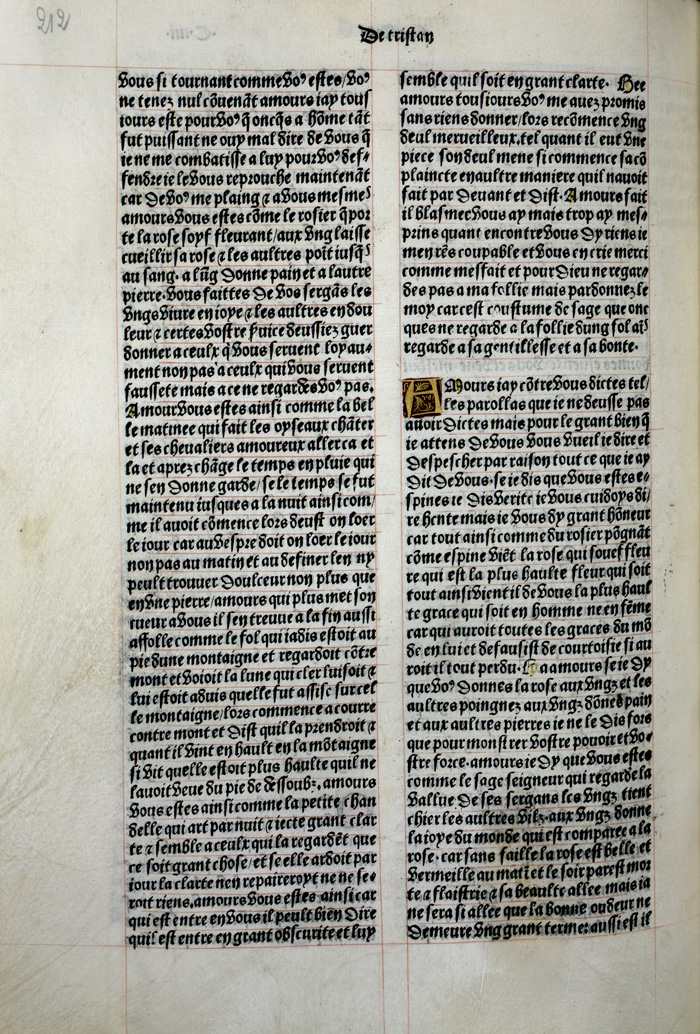 212
De tristan
vous si tournant comme voꝰ estes/voꝰ
ne tenez nul cõuenãt amours iay tous
iours este pour voꝰ q̃ onq̃s a hõme tãt
fut puissant ne ouy mal dire de vous q̃
ie ne me combatisse a luy pour voꝰ def⸗
fendre ie le vous reprouche maintenãt
car de voꝰ me plaing ⁊ a vous mesmeˢ
amours vous estes cõme le rosier q̃ por
te la rose soyf fleurant/aux vng laisse
cueillir sa rose ⁊ les aultres poĩt iusq̃ˢ
au sang. a lũg donne pain et a lautre
pierre. vous faittes de vos sergãs les
vngs viure en ioye ⁊ les aultres en dou
leur ⁊ certes vostre p̃uice deussiez guer
donner a ceulx q̃ vous seruent loyau⸗
ment non pas a ceulx qui vous seruent
faussete mais a ce ne regardes voꝰ pas.
Amour vous estes ainsi comme la bel
le matinee qui fait les oyseaux chãter
et ses cheualiers amoureux aller ca et
la et aprez chãge le temps en pluie qui
ne sen donne garde/se le temps se fut
maintenu iusques a la nuit ainsi com/
me il auoit cõmence lors deust on loer
le iour car au vespre doit on loer le iour
non pas au matin et au definer len ny
peult trouuer doulceur non plus que
en vne pierre/amours qui plus met son
cueur a vous il sen treuue a la fin aussi
affolle comme le fol qui iadis estoit au
pie dune montaigne et regardoit cõtre
mont et voioit la lune qui cler luisoit ⁊
lui estoit aduis quelle fut assise sur cel
le montaigne/lors commence a courre
contre mont et dist quil la prendroit ⁊
quant il vint en hault en la mõtaigne
si vit quelle estoit plus haulte quil ne
lauoit veue du pie de dessoubz. amours
vous estes ainsi comme la petite chan
delle qui art par nuit ⁊ iecte grant clar
te ⁊ semble a ceulx qui la regardẽt que
ce soit grant chose/et se elle ardoit par
iour la clarte nen repaireroyt ne ne se⸗
roit riens. amours vous estes ainsi car
qui est entre en vous il peult bien dire
quil est entre en grant obscurite et luy
semble quil soit en grant clarte. Hee
amours tousiours voꝰ me auez promis
sans riens donner/lors recomence vng
deul merueilleux. tel quant il eut vne
piece son deul mene si commence sa cõ
plaincte en aultre maniere quil nauoit
fait par deuant et dist. Amours fait
il blasme vous ay mais trop ay mes⸗
prins quant encontre vous dy riens ie
men rẽs coupable et vous en crie merci
comme mesfait et pour dieu ne regar⸗
des pas a ma follie mais pardonnez le
moy car cest coustume de sage que onc
ques ne regarde a la follie dung sol aĩˢ
regarde a sa gentillesse et a sa bonte.
Amours iay cõtre vous dictes tel/
les parollas que ie ne deusse pas
auoir dictes mais pour le grant bien q̃
ie attens de vous vous vueil ie dire et
despescher par raison tout ce que ie ay
dit de vous. se ie dis que vous estes e⸗
spines ie dis verite ie vous cuidoys di/
re honte mais ie vous dy grant hõneur
car tout ainsi comme du rosier põgnãt
cõme espine viẽt la rose qui souef fleu
re qui est la plus haulte fleur qui soit
tout ainsi vient il de vous la plus haul
te grace qui soit en homme ne en fẽme
car qui auroit toutes les graces du mõ
de en lui et defausist de courtoisie si au
roit il tout perdu. Ha amours se ie dy
que voꝰ donnes la rose aux vngz et les
aultres poingnez aux vngz dones pain
et aux aultres pierres ie ne le dis fors
que pour monstrer vostre pouoir et vo⸗
stre force. amours ie dy que vous estes
comme le sage seigneur qui regarde la
vallue de ses sergans les vngz tient
chier les aultres vilz. aux vngz donne
la ioye du monde qui est comparee a la
rose. car sans faille la rose est belle et
vermeille au matĩ et le soir parest mor
te ⁊ flaistrie ⁊ sa beaulte allee mais ia
ne sera si allee que la bonne oudeur ne
demeure vng grant terme: aussi est il